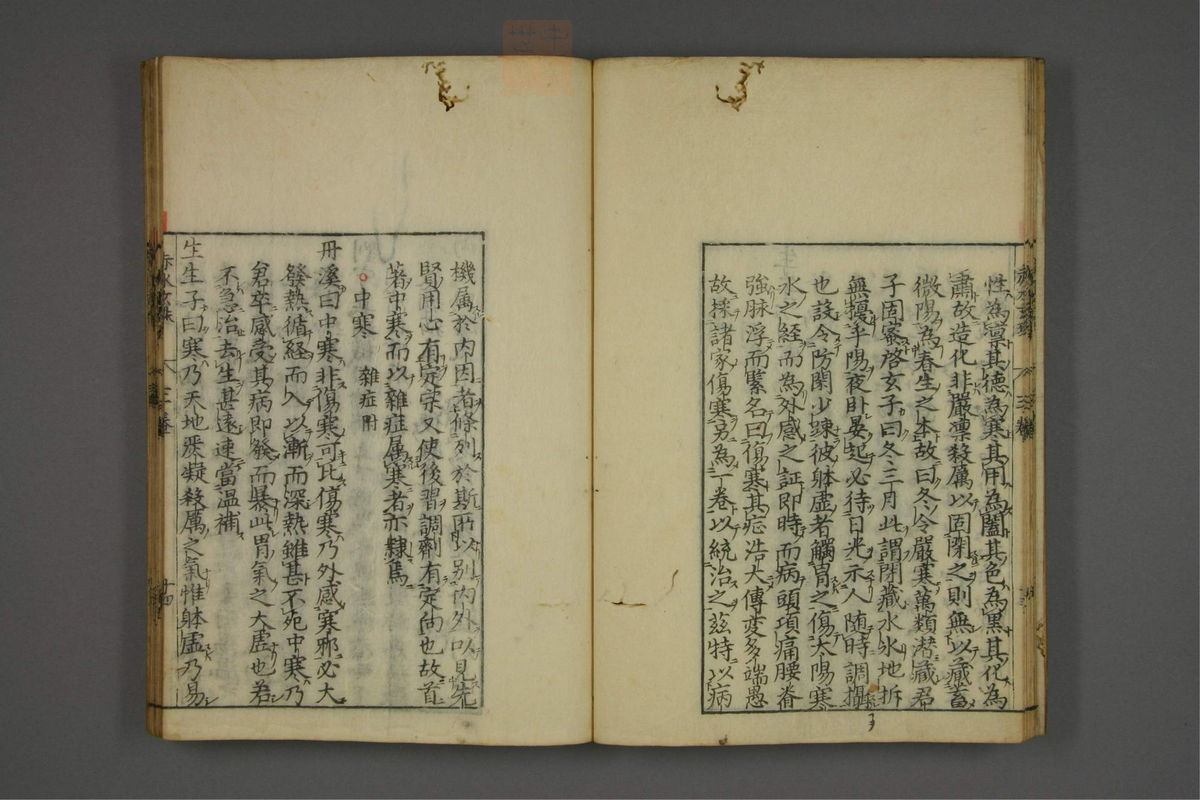 性為凜其德為寒其用為闔其色為黒其化為
肅故造化非嚴凛殺厲以固閉之則無以藏畜
微陽為春生之本故曰冬令嚴寒萬類潜藏君
子固密啓玄子曰冬三月此謂閉藏水氷地拆
無擾乎陽夜卧晏起必待日光示人随時調攝
也設令防閑少踈彼躰虚者觸冒之傷太陽寒
水之經而為外感之証即時而病頭項痛腰脊
強脉浮而緊名曰傷寒其症浩大傳変多端愚
故採諸家傷寒另為一卷以統治之茲特以病
機属於内因者條列於斯所以别内外以見先
賢用心有定宗又使後習調劑有定向也故首
著中寒而以雜症属寒者亦隸焉
中寒 雜症附
丹溪曰中寒非傷寒可比傷寒乃外感寒邪必大
發熱循経而入以漸而深熱雖甚不死中寒乃
倉卒感受其病即發而暴此胃氣之大虚也若
不急治去生甚遠速當温補
生生子曰寒乃天地殺厲之氣惟躰虚乃易